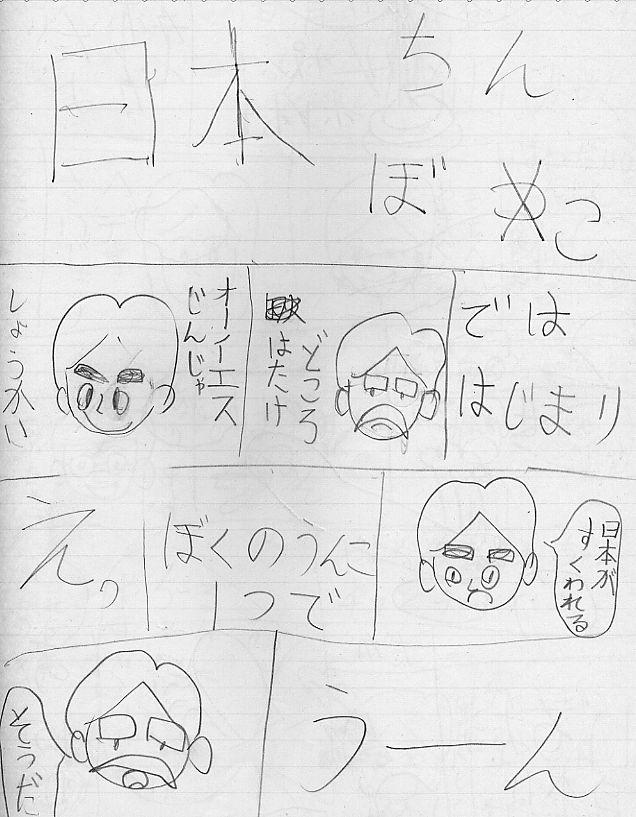 日本
ちん
ぼこ
しょうかい
オーイエス
じんじゃ
どころ
はたけ
では
はじまり
えっ
ぼくのうんこ
1つで
日本が
すくわれる
そうだに
うーん